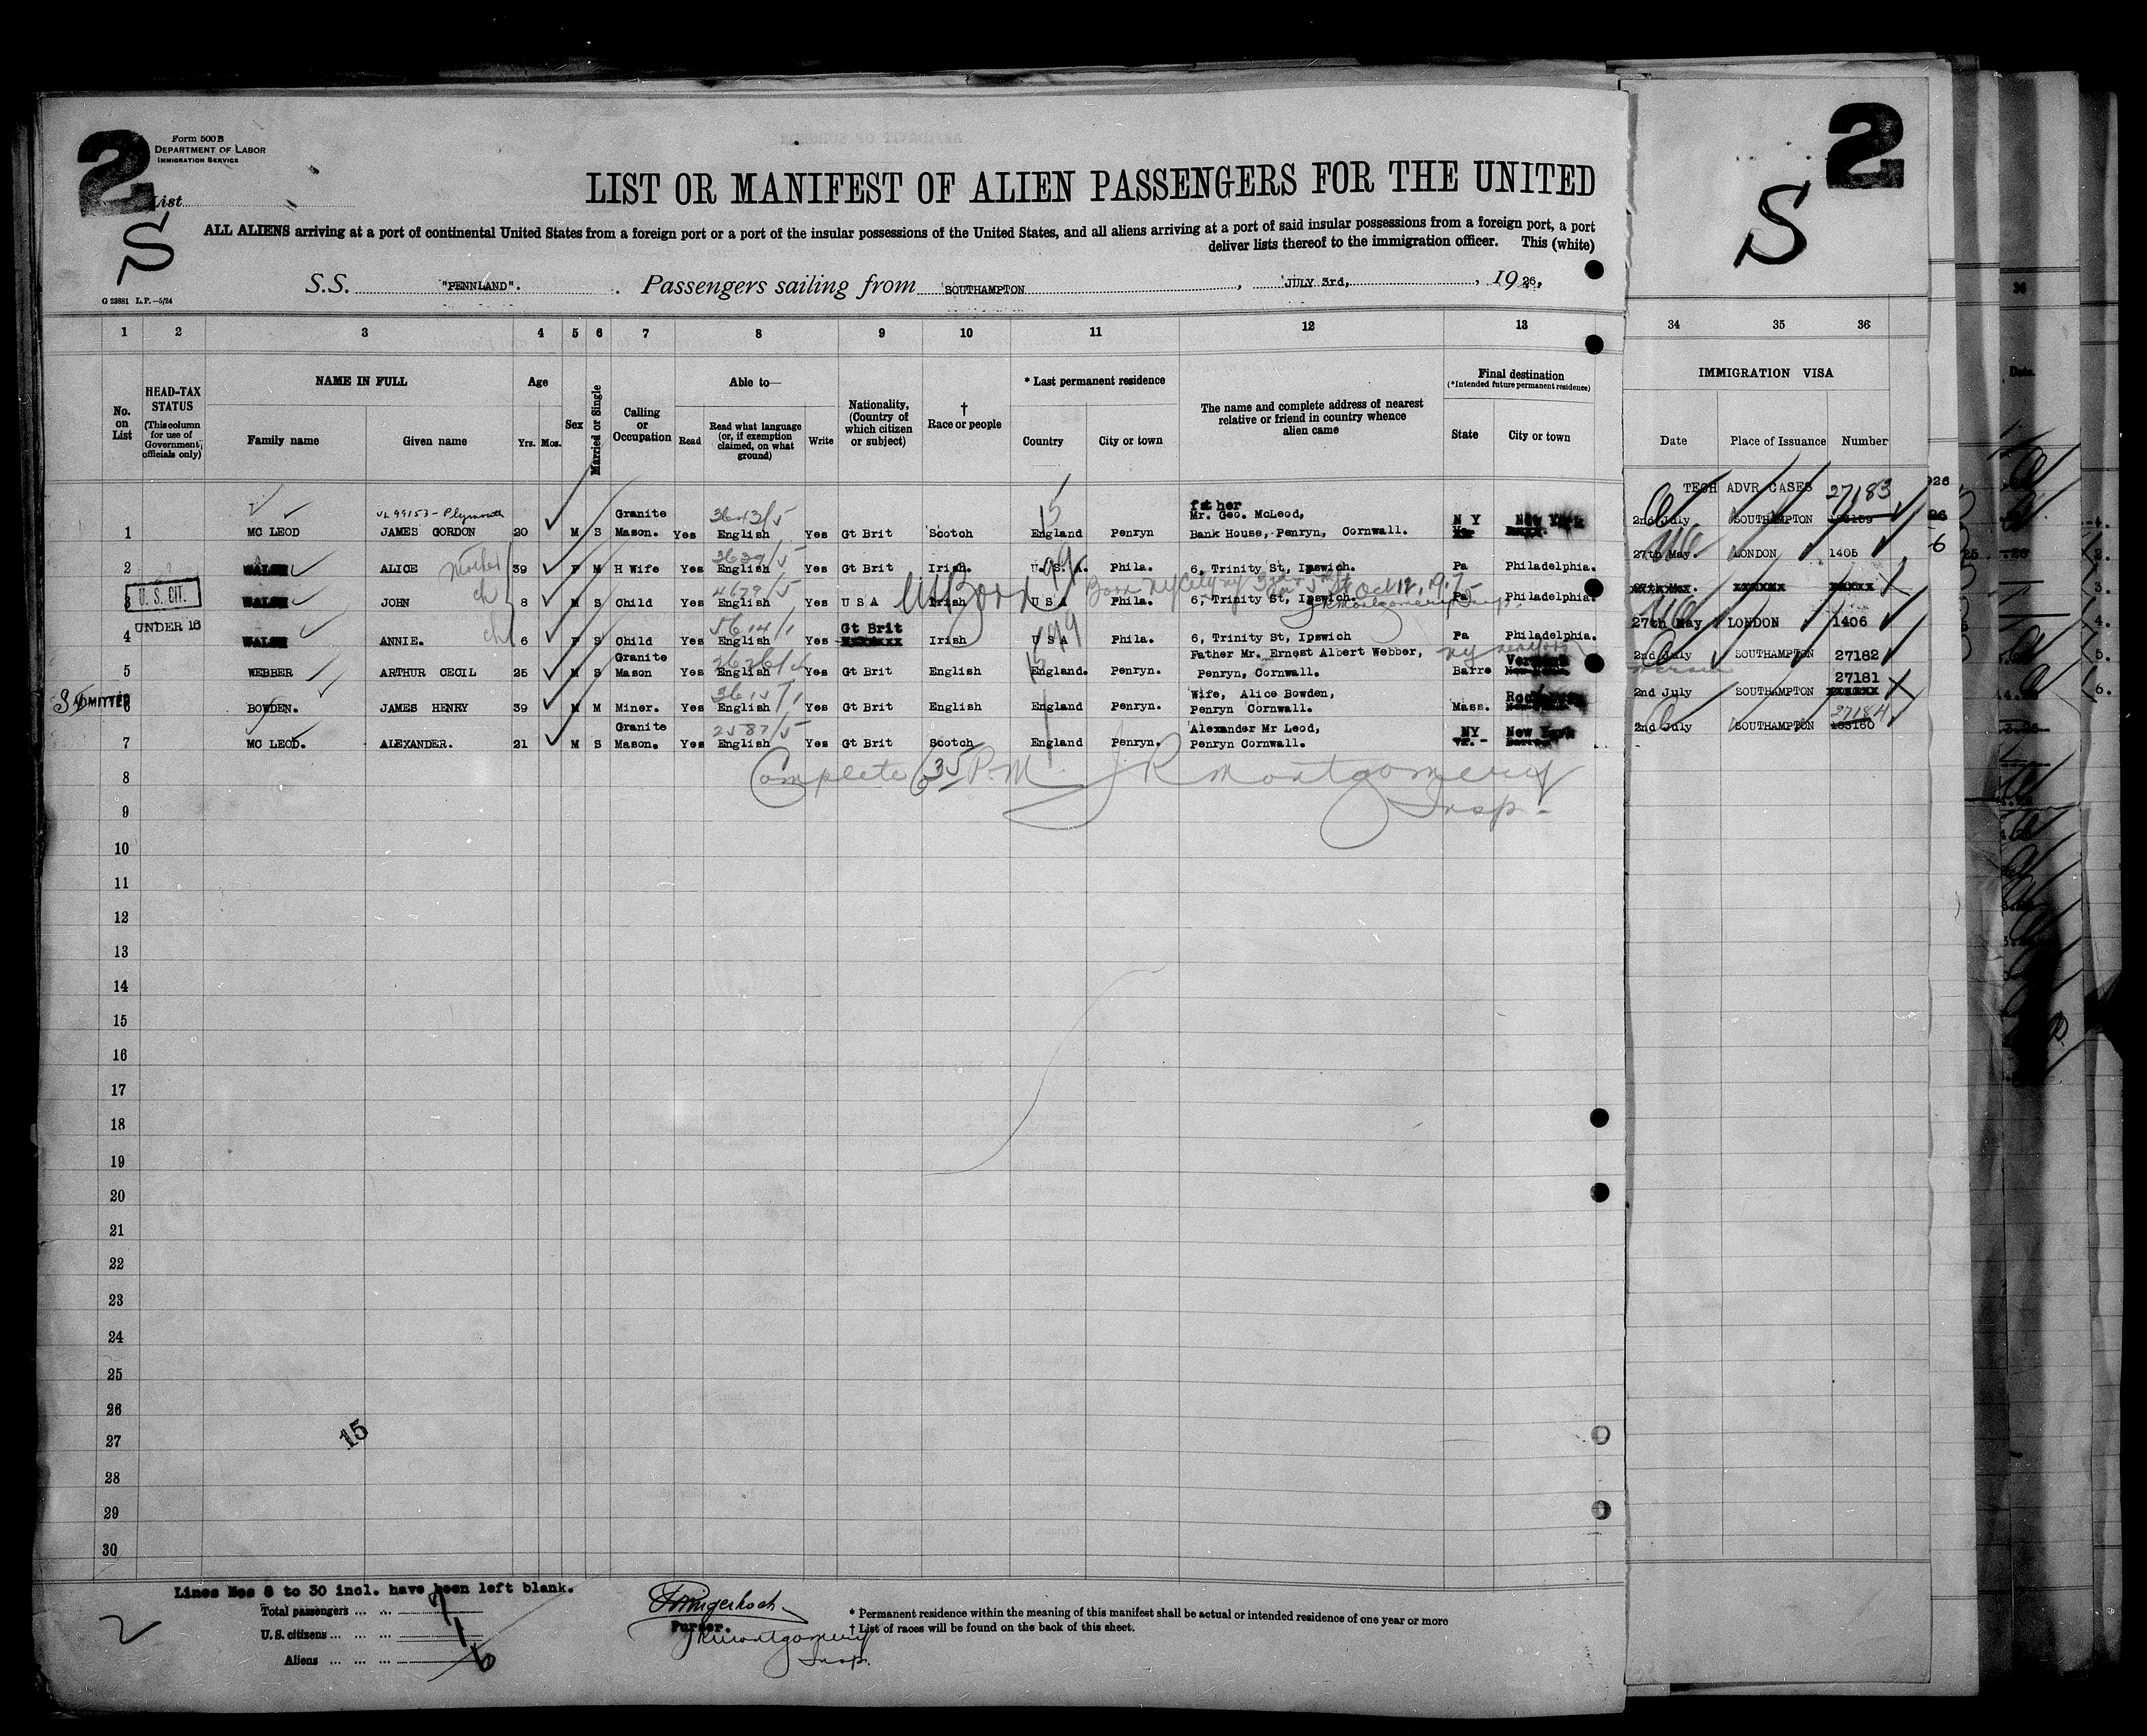 2
Form 500 B
DEPARTMENT OF LABOR
IMMIGRATION SERVICE
List
S
LIST OR MANIFEST OF ALIEN PASSENGERS FOR THE UNITED
ALL ALIENS arriving at a port of continental United States from a foreign port or a port of the insular possessions of the United States, and all aliens arriving at a port of said insular possessions from a foreign port, a port
deliver lists thereof to the immigration officer. This (white)
S.S. "PENNLAND". Passengers sailing from SOUTHAMPTON, JULY 3rd, 1926.
G 23881 L.P.—5/24
2
S
1 2 3 4 5 6 7 8 9 10 11 12 13 34 35 36
No. on List
HEAD-TAX STATUS
(This column for use of Government officials only)
NAME IN FULL
Family name Given name
Age
Yrs. Mos.
Sex
Married or Single
Calling or Occupation
Able to—
Read Read what language (or, if exemption claimed, on what ground) Write
Nationality, (Country of which citizen or subject)
† Race or people
* Last permanent residence
Country City or town
The name and complete address of nearest relative or friend in country whence alien came
Final destination
(*Intended future permanent residence)
State City or town
IMMIGRATION VISA
Date Place of Issuance Number
TECH ADVR CASES 27183
VL 99153 - Plymouth Granite 3643/5 father Mr. Geo. McLeod,
1 MC LEOD JAMES GORDON 20 M S Mason. Yes English Yes Gt Brit Scotch England Penryn Bank House, Penryn, Cornwall. N Y New York 2nd July SOUTHAMPTON
2 WALSH ALICE Mother 39 F M H Wife Yes English Yes Gt Brit Irish. U.S.A. Phila. 6, Trinity St, Ipswich. Pa Philadelphia. 27th May. LONDON 1405
U. S. CIT.
3 WALSH JOHN ch 8 M S Child Yes English Yes U S A Irish U S A Phila. 6, Trinity St, Ipswich. Pa Philadelphia. 27th May.
US Born
UNDER 16
4 WALSH ANNIE. ch 6 F S Child Yes English Yes Gt Brit Irish U S A Phila. 6, Trinity St, Ipswich Pa Philadelphia. 27th May LONDON 1406
Granite Father Mr. Ernest Albert Webber,
5 WEBBER ARTHUR CECIL 25 M S Mason Yes English Yes Gt Brit English England. Penryn. Penryn, Cornwall. Barre Vermont 2nd July SOUTHAMPTON 27182
ADMITTED Wife, Alice Bowden, 27181
6 BOWDEN. JAMES HENRY 39 M M Miner. Yes English Yes Gt Brit English England Penryn. Penryn Cornwall. Mass. 2nd July SOUTHAMPTON
Granite 2587/5 Alexander Mr Leod, 27184
7 MC LEOD. ALEXANDER. 21 M S Mason. Yes English Yes Gt Brit Scotch England Penryn. Penryn Cornwall. NY New York 2nd July SOUTHAMPTON 183160
8 Complete 6 35 P.M. J R Montgomery
9 Insp.
10
11
12
13
14
15
16
17
18
19
20
21
22
23
24
25
26
27
15
28
29
30
Lines Nos 8 to 30 incl. have been left blank.
Total passengers ... ... 7
U. S. citizens ... ... 1
Aliens ... ... ... 6
2
Purser.
J R Montgomery
Insp.
* Permanent residence within the meaning of this manifest shall be actual or intended residence of one year or more
† List of races will be found on the back of this sheet.